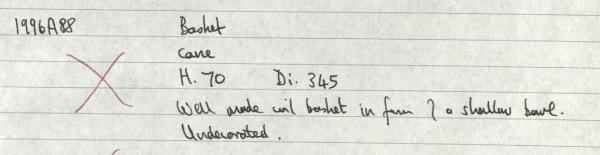 1996A88 Basket
Cane
H. 70 Di. 345
Well made coil basket in form of a shallow bowl.
Undecorated.